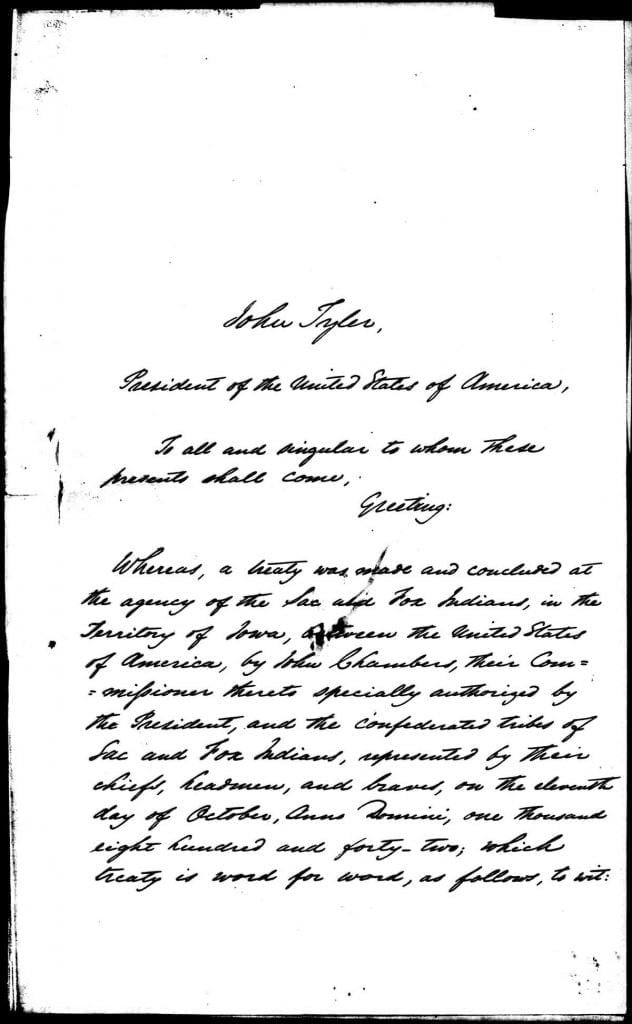 John Tyler,
President of the United States of America,
To all and singular to whom these
presents shall come,
Greeting:
Whereas, a treaty was made and concluded at
the agency of the Sac and Fox Indians, in the
Territory of Iowa, between the United States
of America, by John Chambers, their Com=
=missioner thereto specially authorized by
the President, and the confederated tribes of
Sac and Fox Indians, represented by their
chiefs, headmen, and braves, on the eleventh
day of October, Anno Domini, one thousand
eight hundred and forty-two; which
treaty is word for word, as follows, to wit: